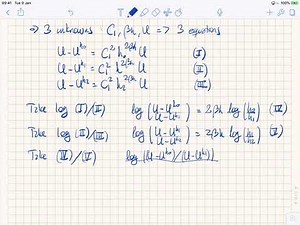 09:41 Tue 9 Jan
100%
→ 3 unknowns C₁, β2k, U => 3 equations
U-U^h₀ = C₁² h₀^2βk U (I)
U-U^h₁ = C₁² h₁^2βk U (II)
U-U^h₂ = C₁² h₂^2βk U (III)
Take log (I)/(II) log (U-U^h₀/U-U^h₁) = 2βk log (h₀/h₁) (IV)
Take log (II)/(III) log (U-U^h₁/U-U^h₂) = 2βk log (h₁/h₂) (V)
Take (IV)/(V) log (U-U^h₀)/(U-U^h₁)